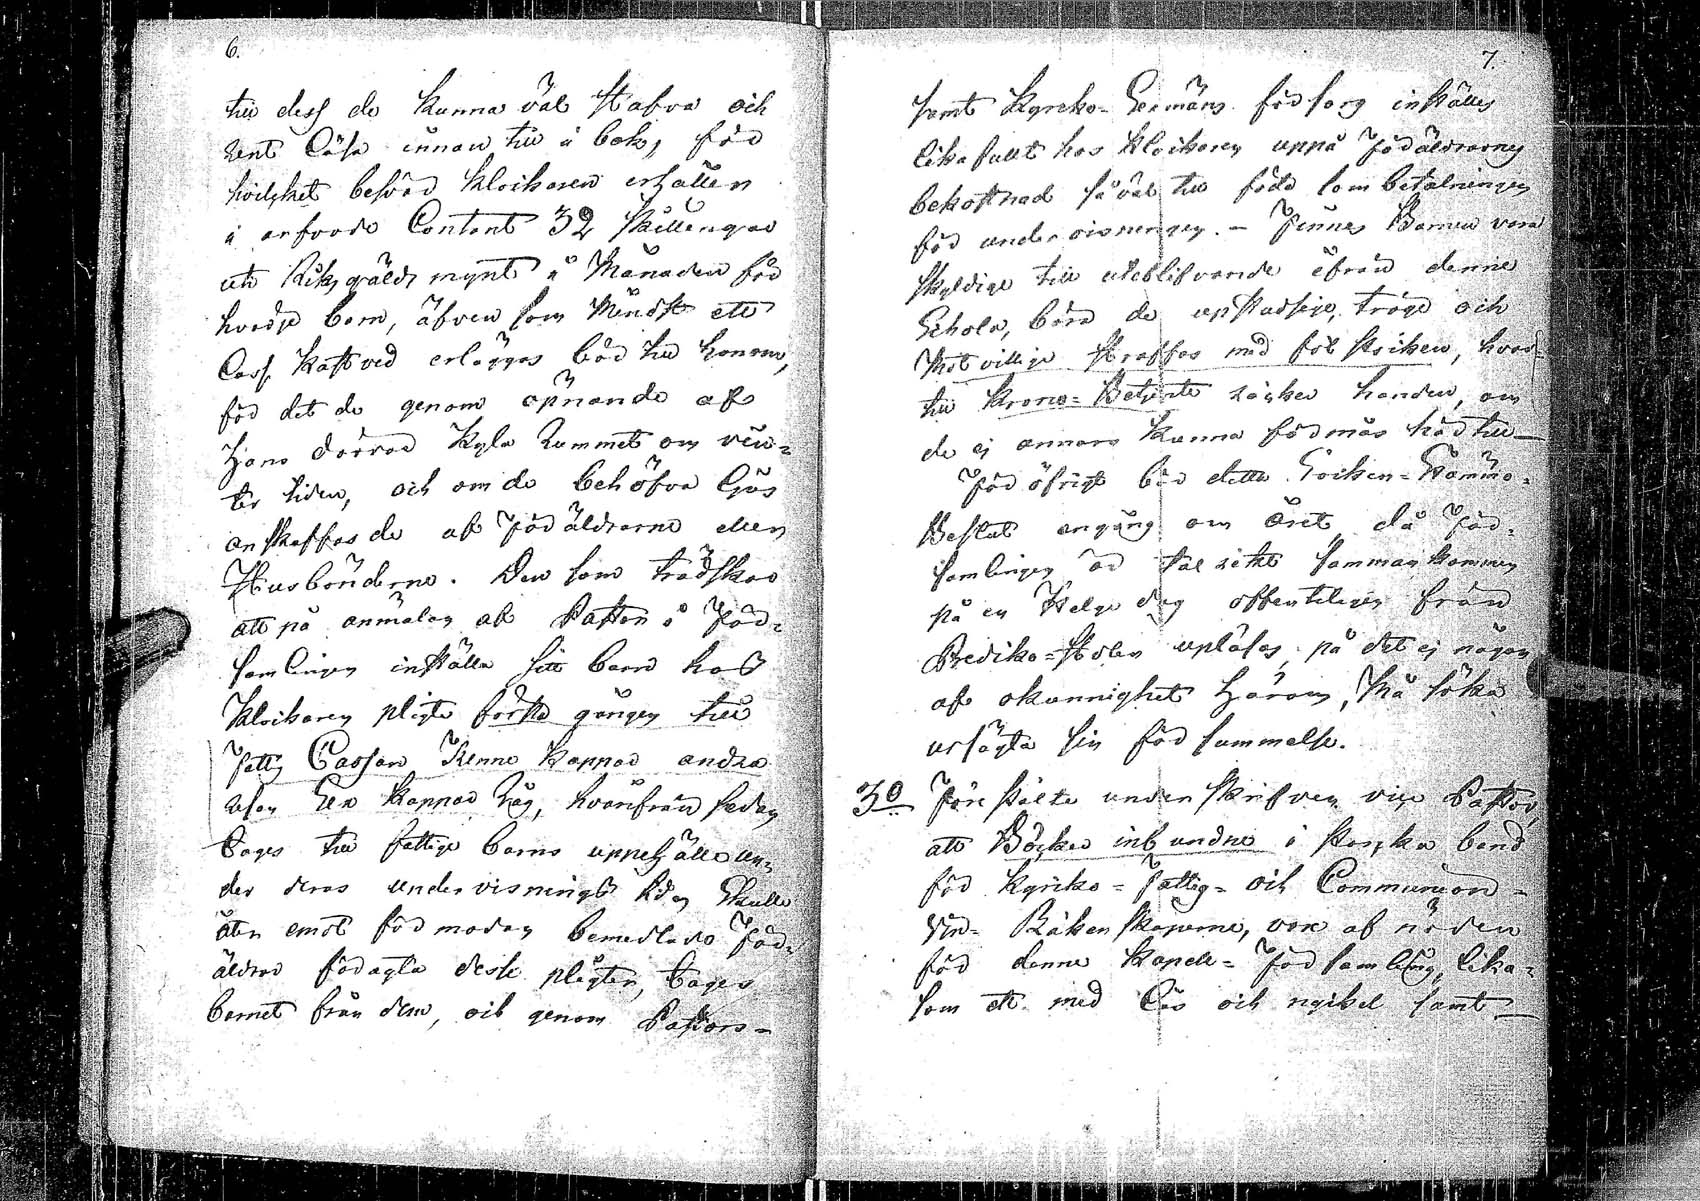 6.
till dess de kunna väl stafva och
rent läsa innan till i bok, för
hvilket besvär klockaren erhåller
i arfvode Contant 32 skillingar
uti Riksgälds mynt i Månaden för
hvarje barn, äfven som Minst ett
lass kastved erlägges bör till honom,
för det de genom öpnande af
Hans dörrar kyla Rummet om vin-
ter tiden, och om de behöfva ljus
anskaffas de af Föräldrarne eller
Husbönderne. Den som trädskas
att på anmälan af Pastor i För-
samlingen inställa sitt barn hos
klockaren pligte första gången till
Fattig Cassan Tenne kappar andra
resan Sex kappar Råg, hvarifrån sedan
tages till fattige barns uppehälle un-
der deras undervisnings tid, skulle
åter emot förmodan bemedlade För-
äldrar förakta desse plikter, tages
barnet från dem, och genom Pastors-
7.
samt Kyrko-Sexmäns försorg inställes
lika fullt hos Klockaren uppå Föräldrarnes
bekostnad såväl till föda som betalningen
för undervisningen. – Finnes Barnen vara
skyldige till uteblifvande ifrån denne
Schola, böra de upstudsige, tröge och
Motvillige straffas med fölstocken, hvar-
till Krono-Betjente räcker handen, om
de ej annars kunna förmås härtill –
För öfrigt bör detta Socken-Stämmo-
Beslut en gång om året, då För-
samlingen är talrikt sammankommen
på en Helgedag offentligen från
Prediko-stolen upläsas, på det ej någon
af okunnighet härom, Må söka
ursägta sin försummelse.
3o Föreställte underskrifven vice Pastor,
att Böcker inbundne i starka band
för Kyrko-Fattig- och Communion-
Vin- Räkenskaperne, vore af nöden
för denne Kapell-Församling, lika-
som ett med lås och nyckel samt –